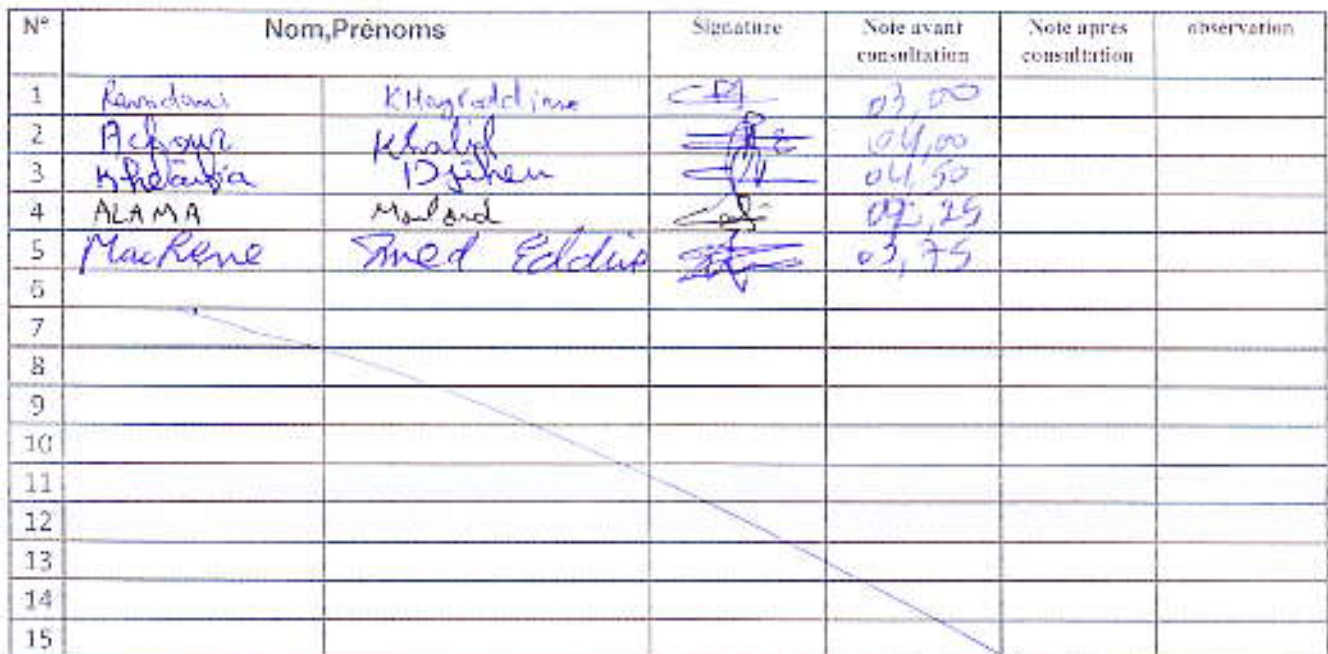 N° Nom,Prénoms Signature Note avant consultation Note apres consultation observation
1 Ramdani KHayreddine 03,00
2 Achour Khalil 04,00
3 Khetatba Djihen 04,50
4 ALAMA Mouloud 02,25
5 Machene Imed Eddine 03,75
6
7
8
9
10
11
12
13
14
15